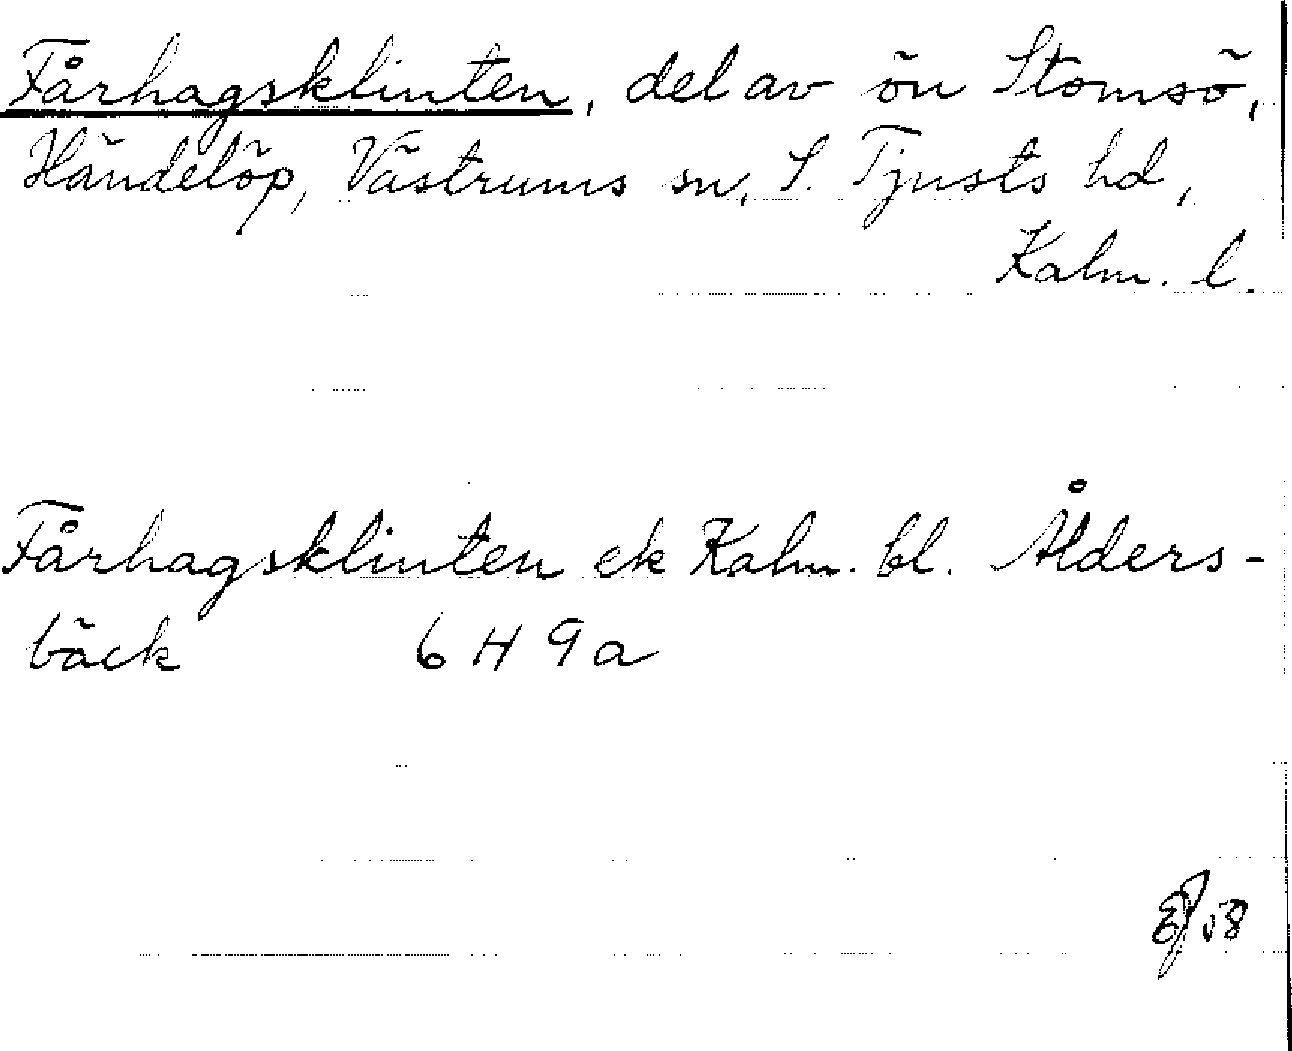 Fårhagsklinten, del av ön Stomsö,
Händelöp, Västrums sn, S. Tjusts hd,
Kalm. l.
Fårhagsklinten ek Kalm. bl. Ålders-
bäck 6 H 9a
58